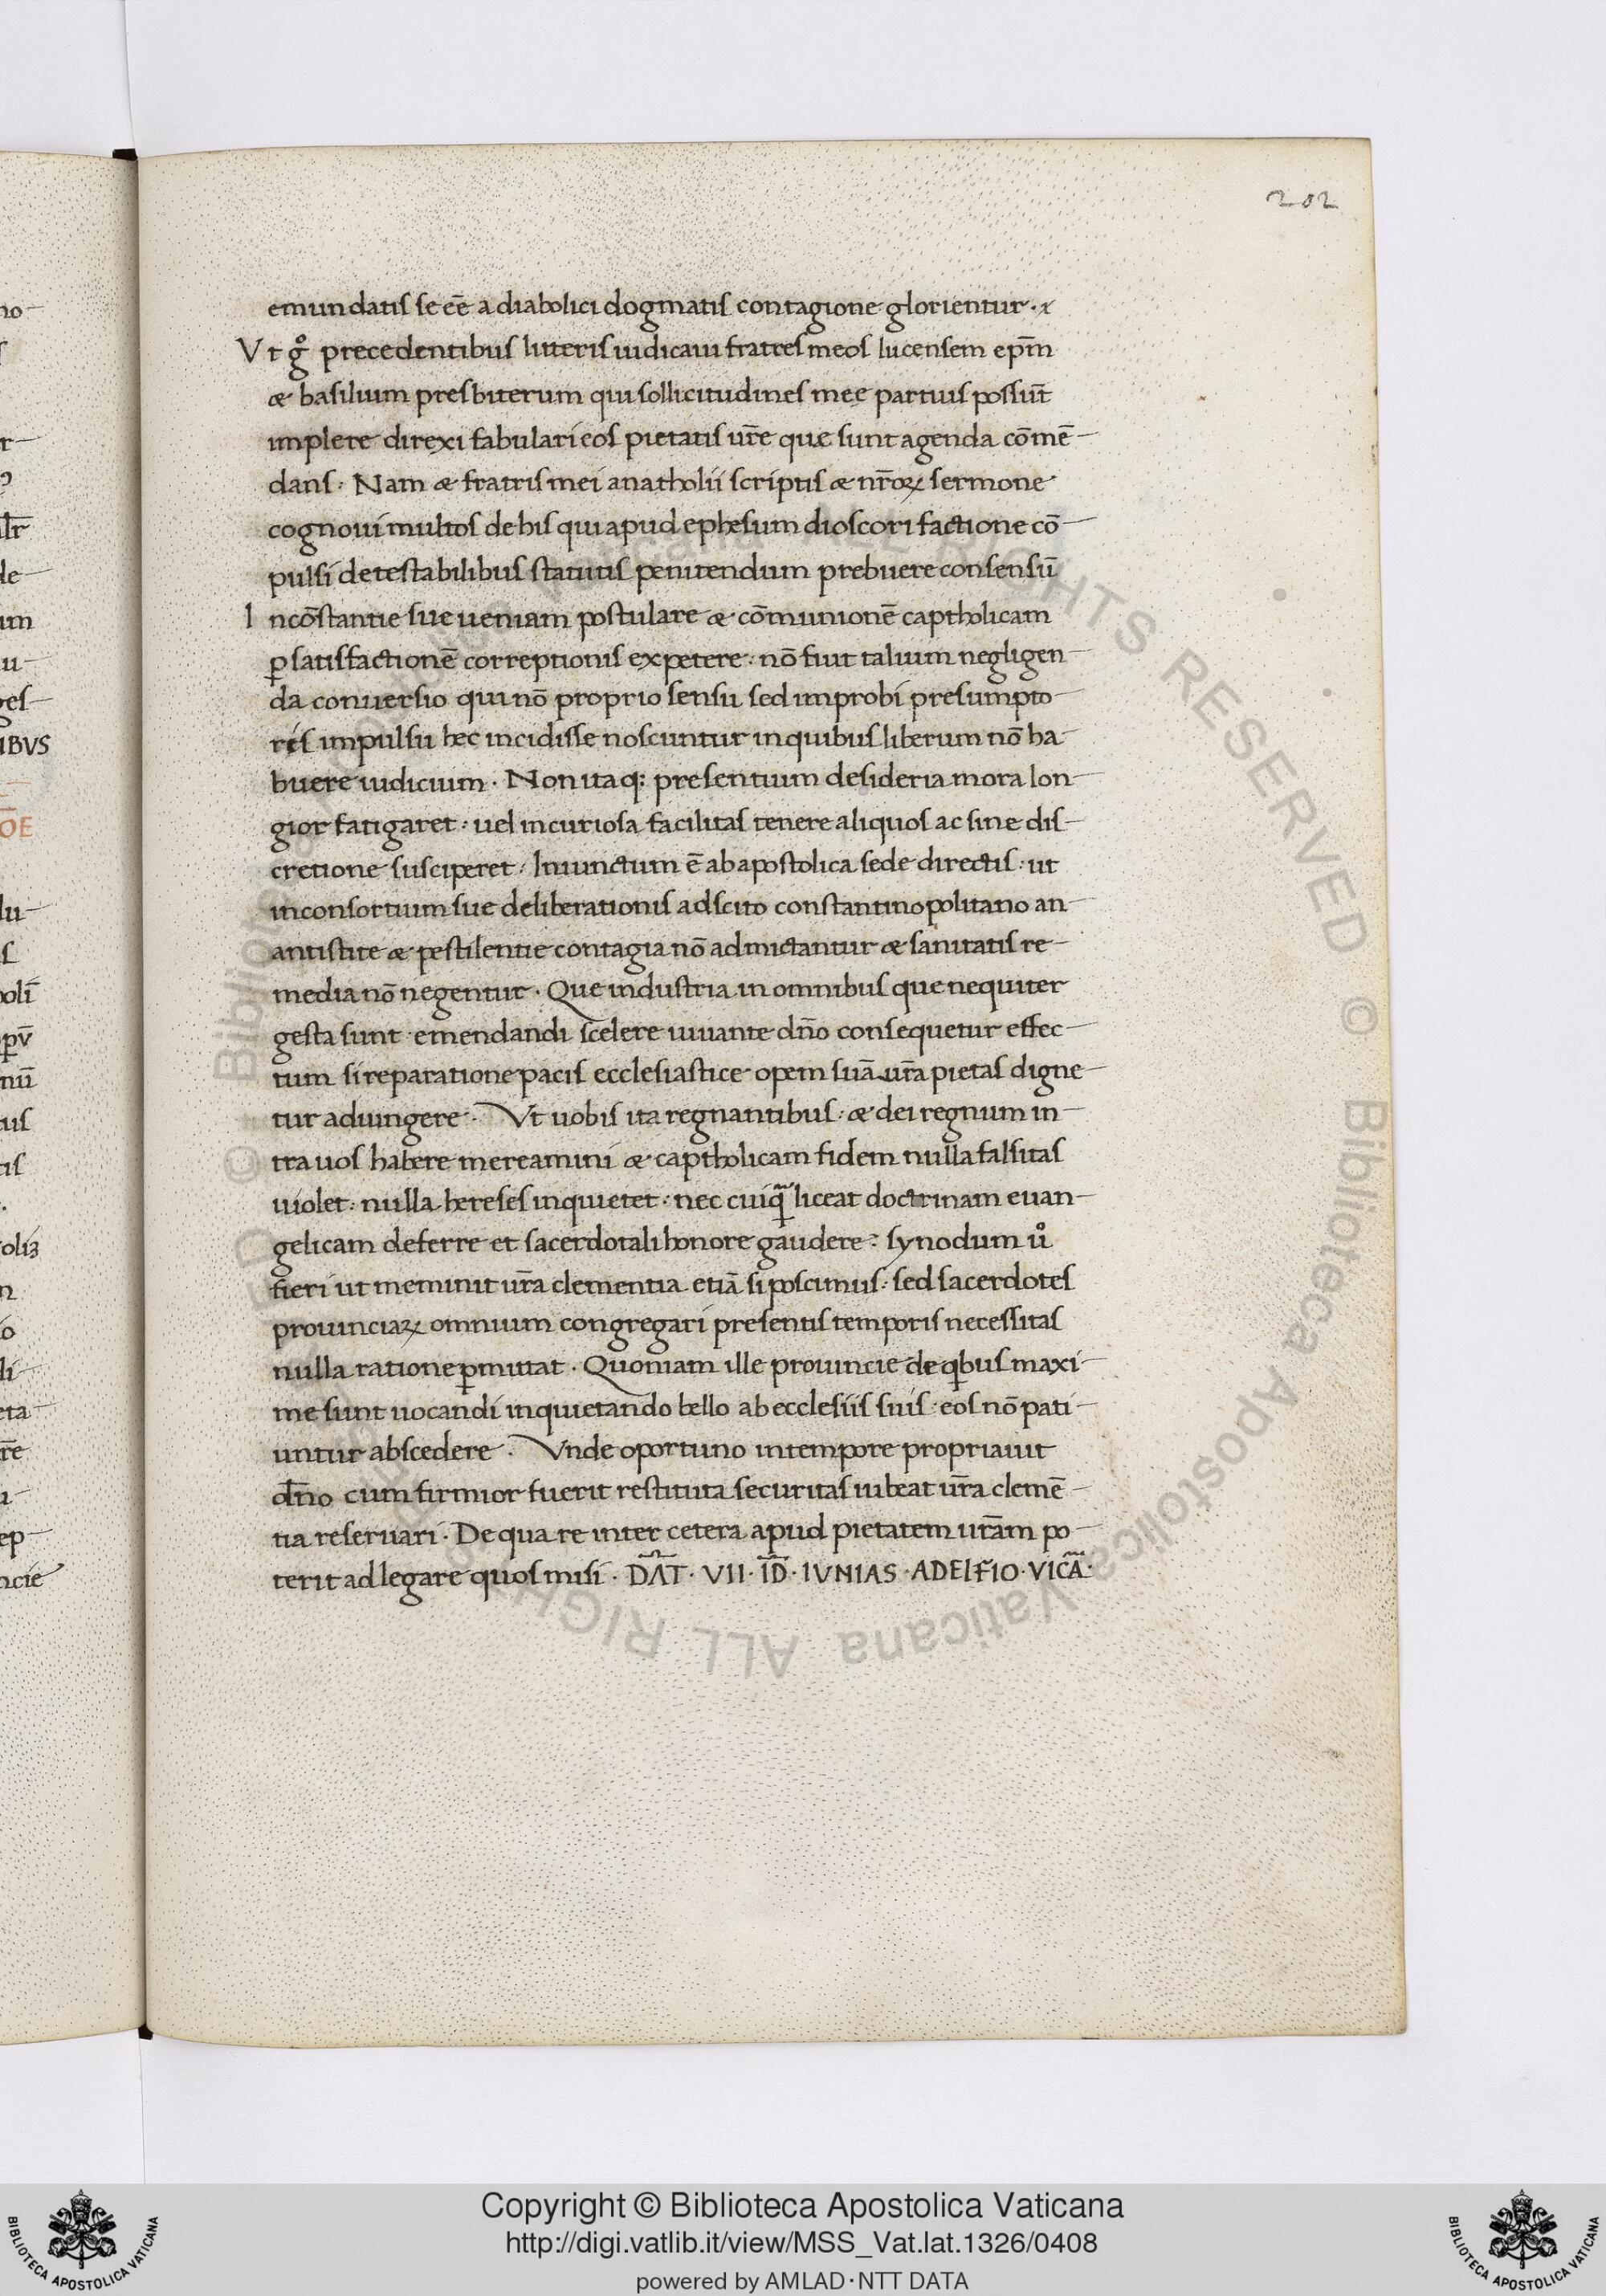 202
emundatis se eē a diabolici dogmatis contagione glorientur.
Vt gͦ precedentibus litteris iudicaui fratres meos lucensem ep̄m
æ basilium presbiterum qui sollicitudines mee partiuis possiut̄
implere direxi fabulari eos pietatis ur̄e que sunt agenda cōmē-
dans. Nam æ fratris mei anatholii scriptis æ nr̄oꝝ sermone
cognoui multos de his qui apud ephesum dioscori factione cō-
pulsi detestabilibus statutis penitendum prebuere consensū
Incōstantie sue ueniam postulare æ cōmunionē captholicam
ꝑ satisfactionē correptionis expetere. nō fiut talium negligen-
da conuersio qui nō proprio sensu sed improbi presumpto-
res impulsu hec incidisse noscuntur in quibus liberum nō ha-
buere iudicium. Non itaq: presentium desideria mora lon-
gior fatigaret. uel incuriosa facilitas tenere aliquos ac sine dis-
cretione susciperet. Iniunctum ē ab apostolica sede directis. ut
in consortium sue deliberationis adscito constantinopolitano an-
antistite æ pestilentie contagia nō admictantur æ sanitatis re-
media nō negentur. Que industria in omnibus que nequiter
gesta sunt emendandi scelere iuuante dn̄o consequetur effec-
tum si reparatione pacis ecclesiastice opem suā ur̄a pietas digne-
tur adiungere. Vt uobis ita regnantibus. æ dei regnum in-
tra uos habere mereamini æ captholicam fidem nulla falsitas
uiolet. nulla hereses inquietet. nec cuiqͣ liceat doctrinam euan-
gelicam deferre et sacerdotali honore gaudere. synodum uͦ
fieri ut meminit ur̄a clementia etiā si poscimus. sed sacerdotes
prouinciaꝝ omnium congregari presentis temporis necessitas
nulla ratione ꝑmittat. Quoniam ille prouincie de qͥbus maxi-
me sunt uocandi inquietando bello ab ecclesiis suis. eos nō pati-
untur abscedere. Vnde oportuno in tempore propriauit
dn̄o cum firmior fuerit restituta securitas iubeat ur̄a clemē-
tia reseruari. De qua re inter cetera apud pietatem ur̄am po-
terit ad legare quos misi. DAT̄. VII. ID̄. IVNIAS. ADELFIO. VICĀ.
Copyright © Biblioteca Apostolica Vaticana
http://digi.vatlib.it/view/MSS_Vat.lat.1326/0408
powered by AMLAD·NTT DATA